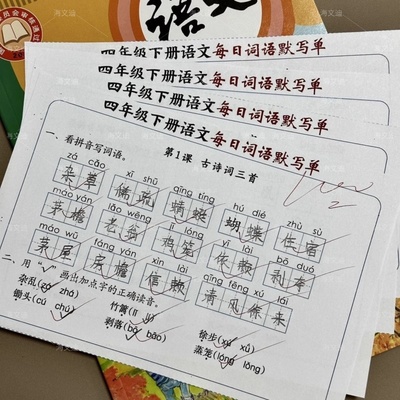 员会审核通过
语文
四年级下册语文每日词语默写单
四年级下册语文每日词语默写单
四年级下册语文每日词语默写单
四年级下册语文每日词语默写单
第1课 古诗词三首
一、看拼音写词语。
zá cǎo xī shū qīng tíng hú dié zhù sù
杂草 稀疏 蜻蜓 蝴蝶 住宿
máo yán lǎo wēng jī lóng yī lài bō duó
茅檐 老翁 鸡笼 依赖 剥夺
máo wū fáng yán xìn lài qīng fēng xú lái
茅屋 房檐 信赖 清风徐来
二、用“√”画出加点字的正确读音。
杂乱(zá zhá) 竹篱(lí yí) 徐步(xú xǔ)
锄头(cú chú) 剥落(bō bāo) 蒸笼(lóng lǒng)